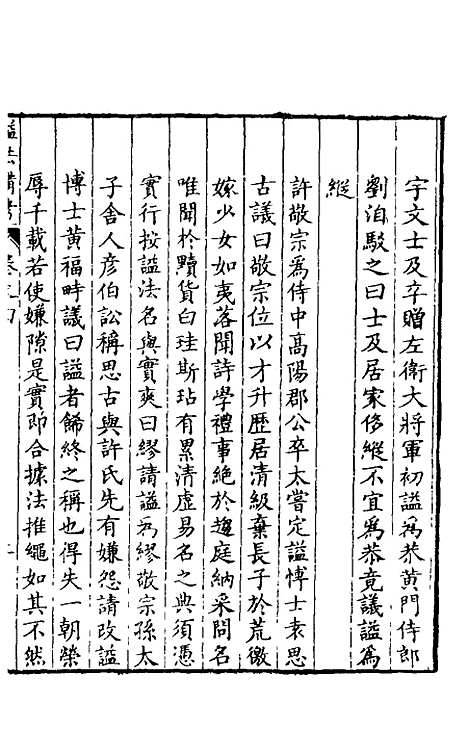 宇文士及卒贈左衛大將軍初謚為恭黃門侍郎
劉洎駁之曰士及居家侈縱不宜為恭竟議謚為
縱
許敬宗為侍中高陽郡公卒太嘗定謚博士袁思
古議曰敬宗位以才升歷居清級棄長子於荒徼
嫁少女如夷落聞詩學禮事絕於趨庭納采問名
唯聞於黷貨白珪斯玷有累清虛易名之典須憑
實行按謚法名與實爽曰繆請謚為繆敬宗孫太
子舍人彥伯訟稱思古與許氏先有嫌怨請改謚
博士黃福畤議曰謚者餙終之稱也得失一朝榮
辱千載若使嫌隙是實即合據法推繩如其不然